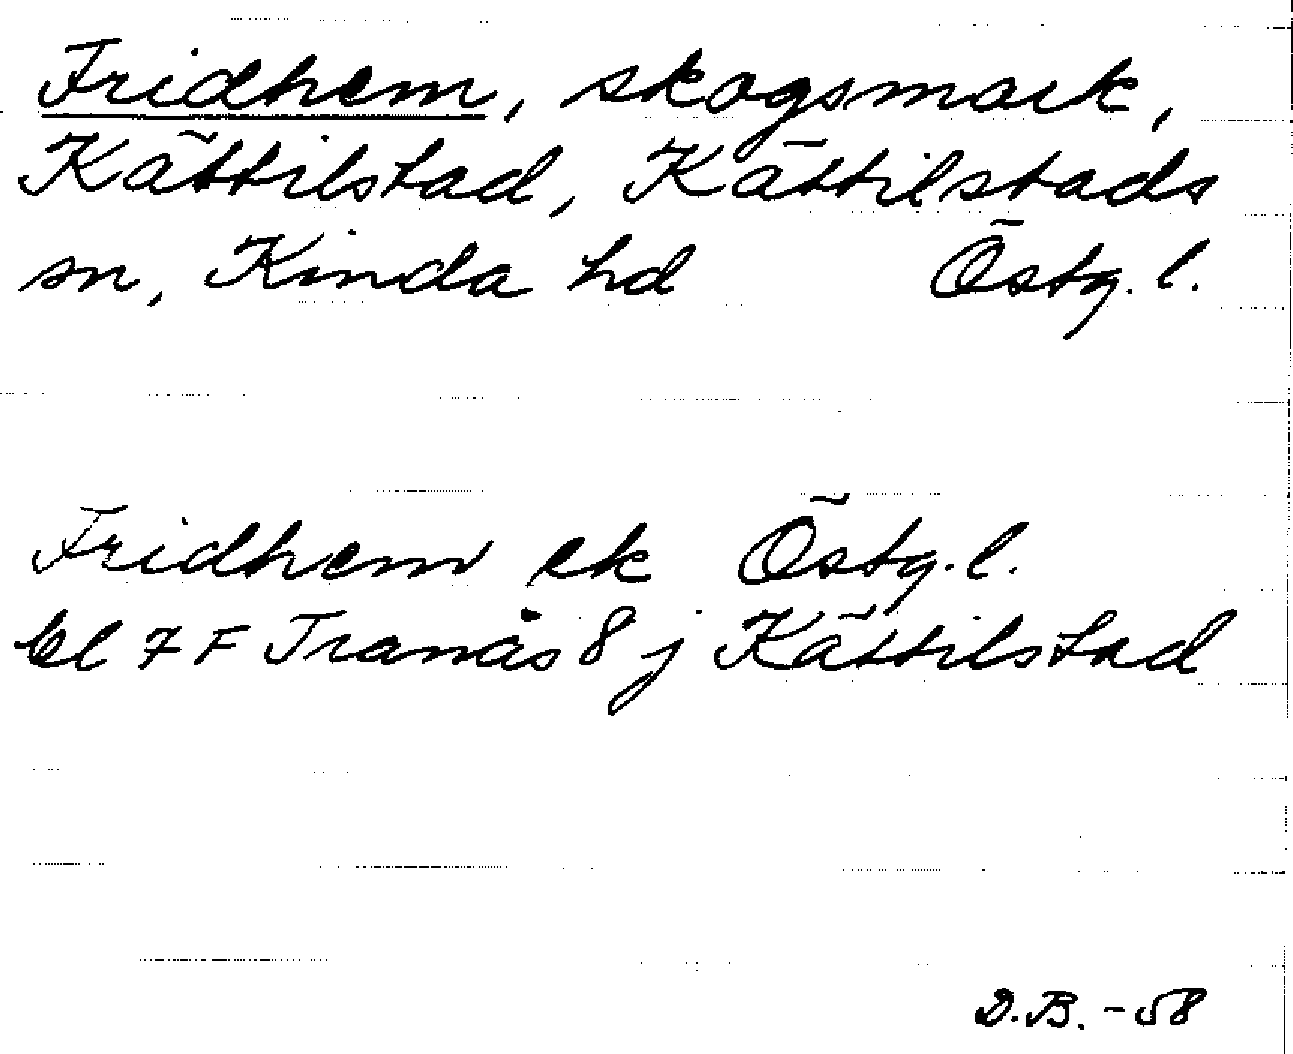 Fridhem, skogsmark,
Kättilstad, Kättilstads
sn, Kinda hd Östg. l.
Fridhem ek Östg. l.
bl 7 F Tranås 8 j Kättilstad
D.B. -58